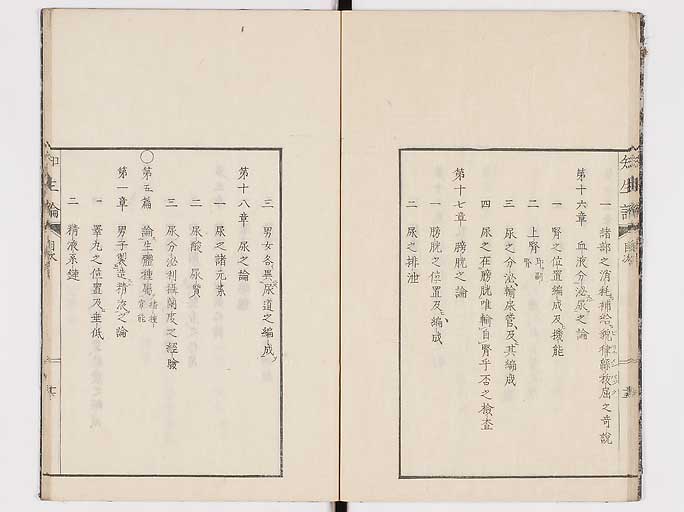 一 諸部之消耗補給
第十六章 血液分泌尿之論
一 腎之位置編成及機能
二 上腎 即副腎
三 尿之分泌輸尿管及其編成
四 尿之在膀胱唯輸自腎乎否之檢査
第十七章 膀胱之論
一 膀胱之位置及編成
二 尿之排泄
三 男女各異尿道之編成
第十八章 尿之論
一 尿之諸元素
二 尿酸 尿質
三 尿分泌利攝蘭度之經驗
〇第五篇 論生體種屬
第一章 男子製造精液之論
一 睪丸之位置及垂低
二 精液系鏈
生論
目次